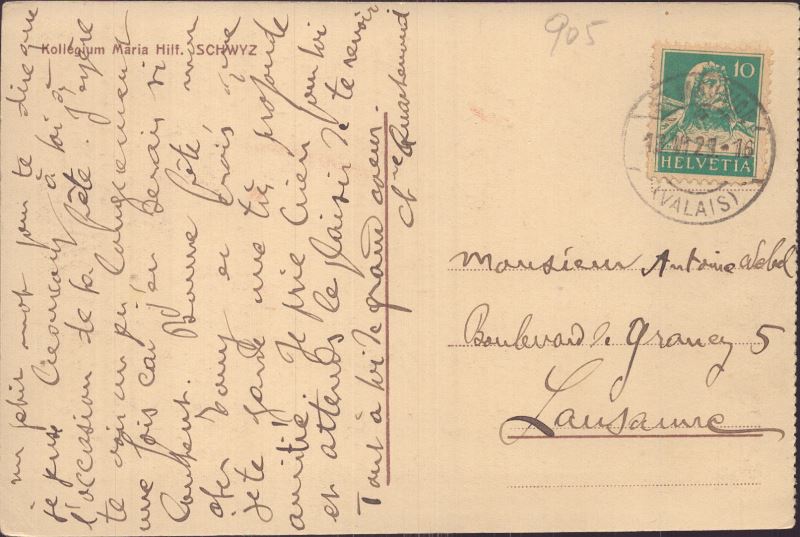 Kollegium Maria Hilf. SCHWYZ
905
10
HELVETIA
(VALAIS)
un petit mot pour te dire que
je pense beaucoup à toi à
l'occasion de ta fête. J'espère
te voir un peu longuement
une fois car j'en serais si
content. Bonne fête, mon
cher Tony et crois que
je te garde une très profonde
amitié. Je prie bien pour toi
et attends le plaisir de te revoir
Tout à toi de grand coeur.
Monsieur Antoine
Boulevard de Grancy 5
Lausanne